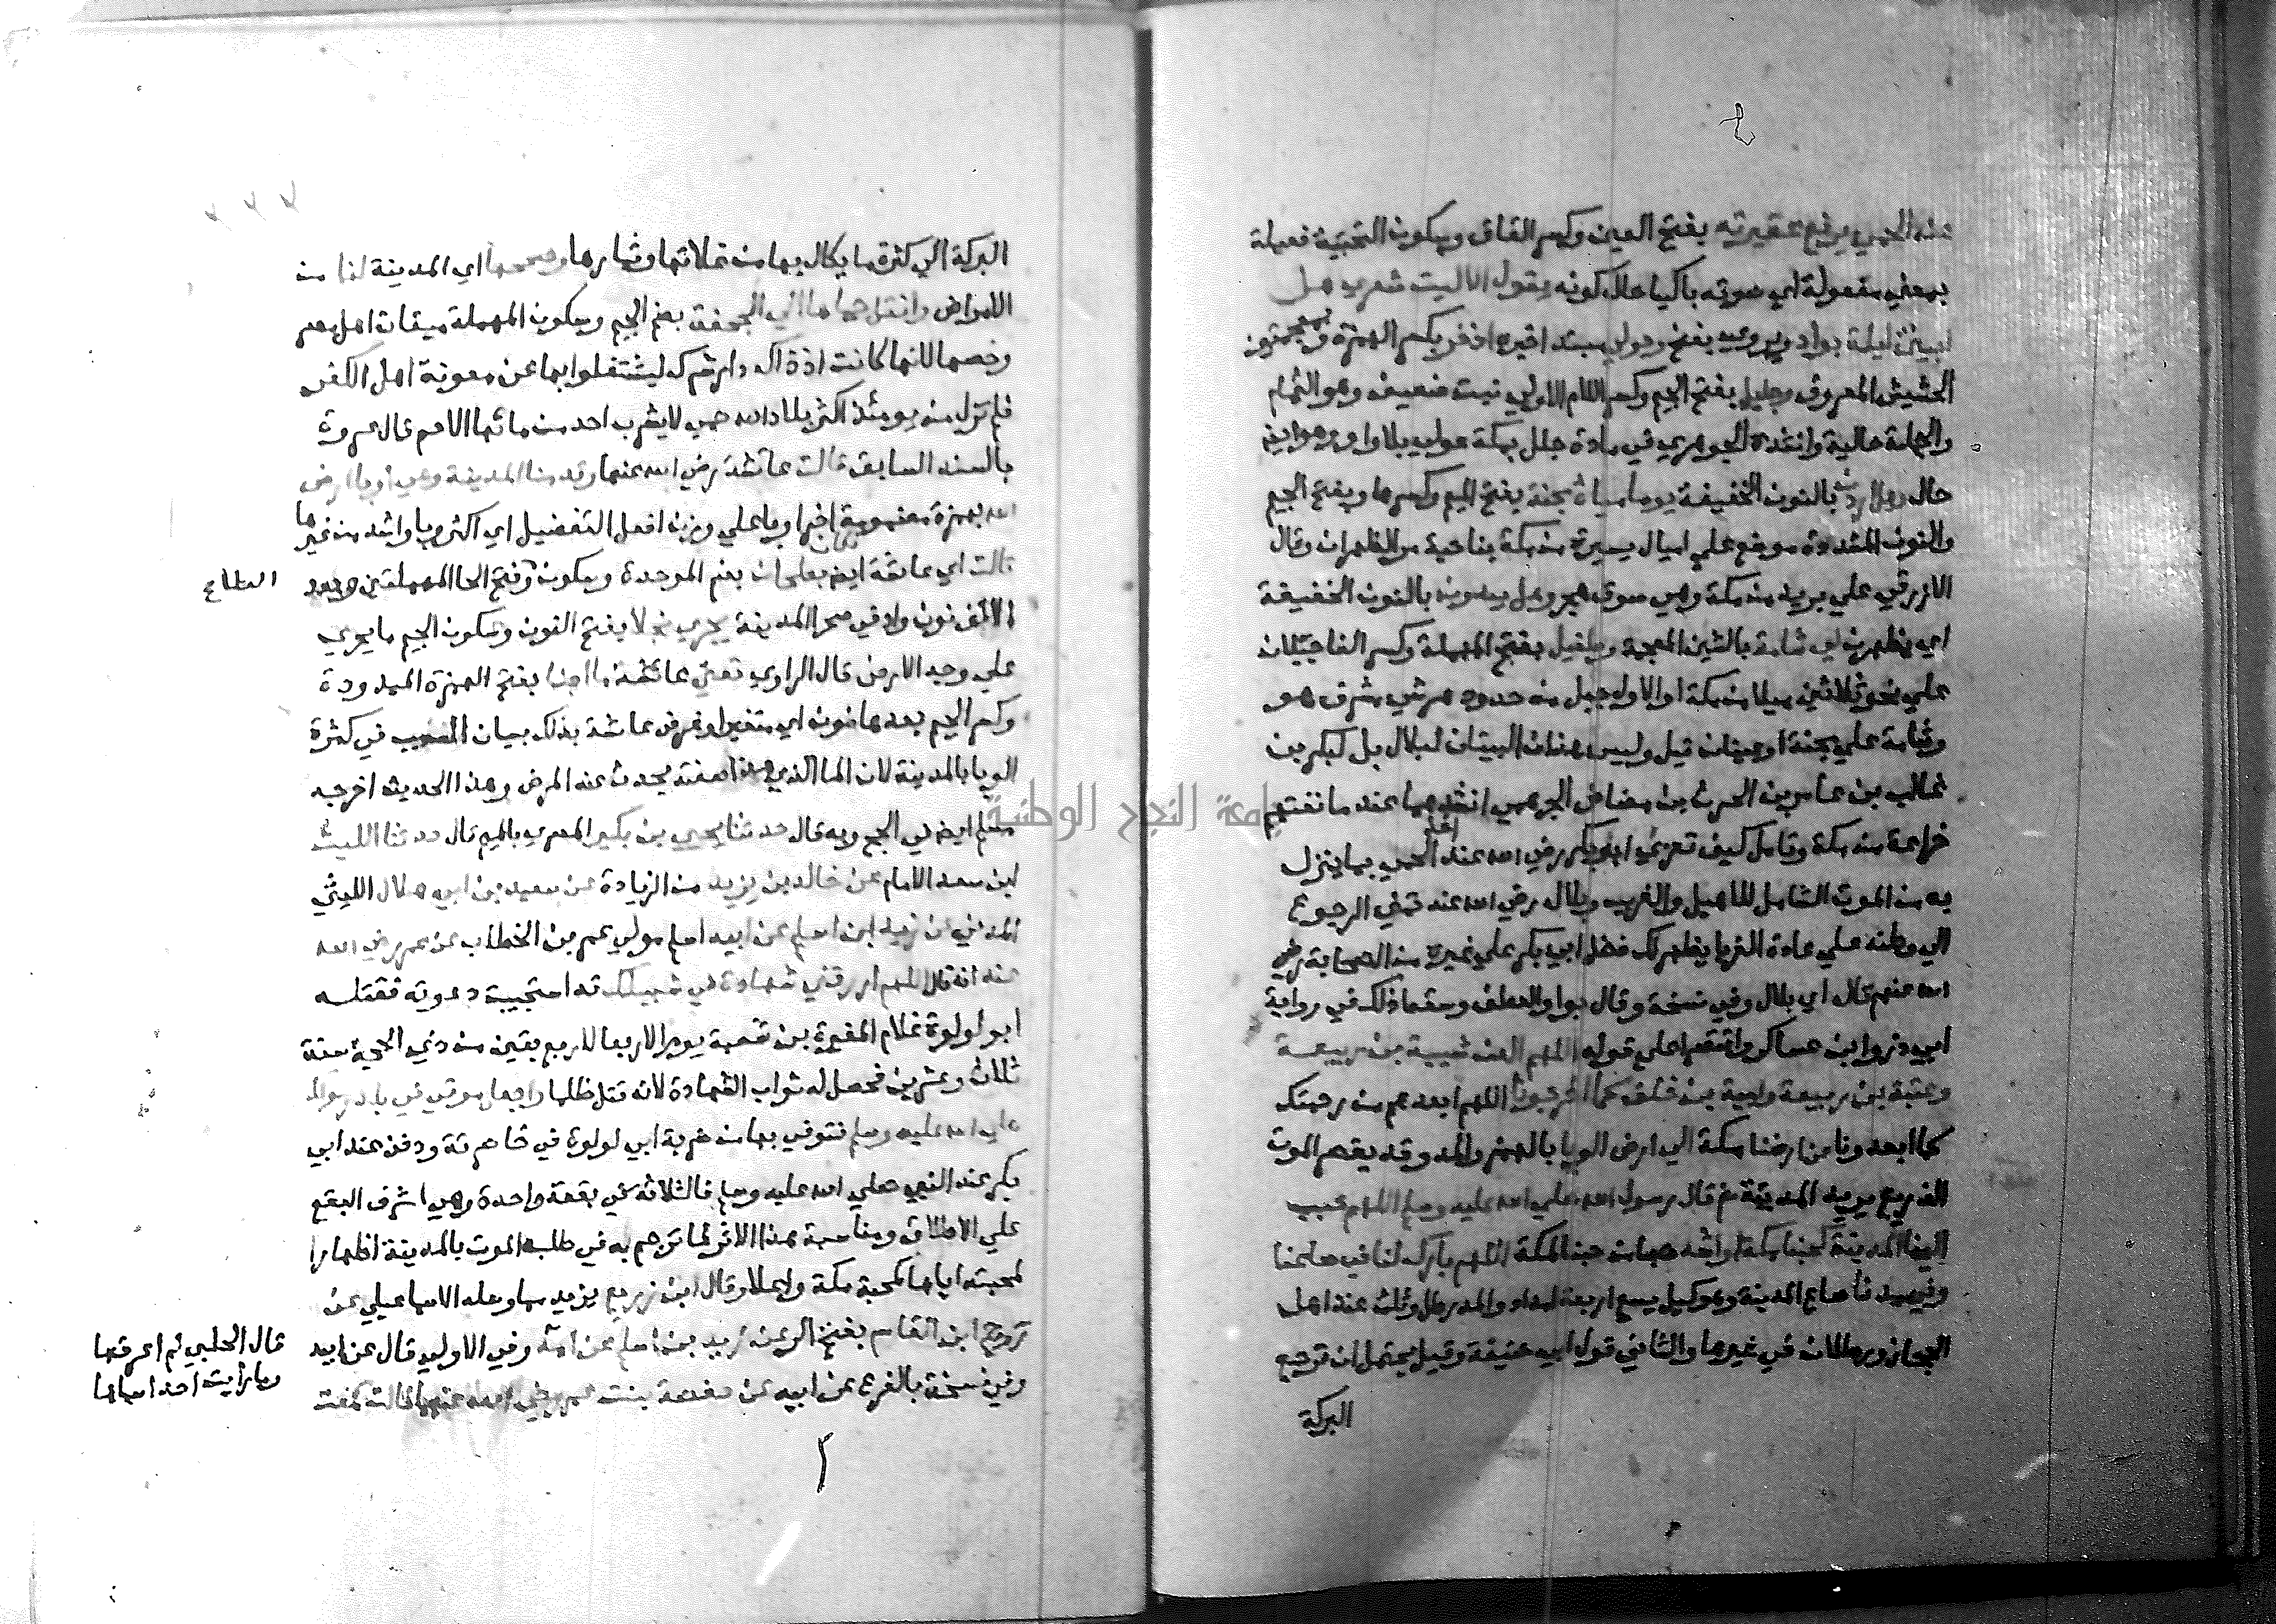 عنه الحمي يرفع عقيرته بفتح العين وكسر القاف وسكون التحتية فعيلة
بمعني مفعولة اي صوته باكيا حال كونه يقول الا ليت شعري هل
ابيتن ليلة بواد وحولي مبتدا خبره اذخر بكسر الهمزة وبمعجمتين
الحشيش المعروف وجليل بفتح الجيم وكسر اللام الاولي نبت ضعيف وهو الثمام
والجملة حالية وانشده الجوهري في مادة جلل بمكة حولي بلا واو وهو ايضا
حال وهل اردن بالنون الخفيفة يوما مياه مجنة بفتح الميم وكسرها وبفتح الجيم
والنون المشددة موضع علي اميال يسيرة من مكة بناحية مر الظهران وقال
الازرقي علي بريد من مكة وهي سوق هجر وهل يبدون بالنون الخفيفة
اي يظهرن لي شامة بالشين المعجمة وطفيل بفتح المهملة وكسر الفا جبلان
علي نحو ثلاثين ميلا من مكة او الاول جبل من حدود هرشي مشرف هو
وشامة علي مجنة او عينان قيل وليس هذان البيتان لبلال بل لبكر بن
غالب بن عامر بن الحرث بن مضاض الجرهمي انشدهما عند ما نفتهم
خزاعة من مكة وتامل كيف تعزي ابو بكر رضي الله عنه اخذ الحمي بما ينزل
به من الموت الشامل للاهيل والغريب وبلال رضي الله عنه تمني الرجوع
الي وطنه علي عادة الغربا يظهر لك فضل ابي بكر علي غيره من الصحابة رضي
الله عنهم قال اي بلال وفي نسخة وقال بواو العطف وسقط ذلك في رواية
ابي ذر وابن عساكر واقتصرا علي قوله اللهم العن شيبة بن ربيعة
وعتبة بن ربيعة وامية بن خلف كما اخرجونا اللهم ابعدهم من رحمتك
كما ابعدونا من ارضنا مكة الي ارض الوبا بالهمز والمد وقد يقصر الموت
الذريع يريد المدينة ثم قال رسول الله صلي الله عليه وسلم اللهم حبب
الينا المدينة كحبنا مكة او اشد حبا من حبنا لمكة اللهم بارك لنا في صاعنا
وفي مدنا صاع المدينة وهو كيل يسع اربعة امداد والمد رطل وثلث عند اهل
الحجاز ورطلان في غيرها والثاني قول ابي حنيفة وقيل يحتمل ان ترجع
البركة
البركة الي كثرة ما يكال بها من غلاتها وثمارها وصححها اي المدينة لنا من
الامراض وانقل حماها الي الجحفة بضم الجيم وسكون المهملة ميقات اهل مصر
وخصها لانها كانت اذ ذاك دار شرك ليشتغلوا بها عن معونة اهل الكفر
فلم تزل من يومئذ اكثر بلاد الله حمي لا يشرب احد من مائها الا حم قال عروة
بالسند السابق قالت عائشة رضي الله عنها وقدمنا المدينة وهي اوبا ارض
الله بهمزة مضمومة اخر اوبا علي وزن افعل التفضيل اي اكثر وبا واشد من غيرها
قالت اي عائشة ايضا فكان بطحان بضم الموحدة وسكون وفتح الحا المهملتين وبعد
الطاء
الالف نون واد في صحرا المدينة يجري نجلا بفتح النون وسكون الجيم ما يجري
علي وجه الارض قال الراوي تعني عائشة ما اجنا بفتح الهمزة الممدودة
وكسر الجيم بعدها نون اي متغيرا وغرض عائشة بذلك بيان السبب في كثرة
الوبا بالمدينة لان الما الذي هذا صفته يحدث عنه المرض وهذا الحديث اخرجه
مسلم ايضا في الحج وبه قال حدثنا يحيي بن بكير المصري بالميم قال حدثنا الليث
ابن سعد الامام عن خالد بن يزيد من الزيادة عن سعيد بن ابي هلال الليثي
المدني عن زيد ابن اسلم عن ابيه اسلم مولي عمر بن الخطاب عن عمر رضي الله
عنه انه قال اللهم ارزقني شهادة في سبيلك قد استجيبت دعوته فقتله
ابو لولوة غلام المغيرة بن شعبة يوم الاربعا لاربع بقين من ذي الحجة سنة
ثلاث وعشرين فحصل له ثواب الشهادة لانه قتل ظلما واجعل موتي في بلد رسولك
صلي الله عليه وسلم فتوفي بها من ضربة ابي لولوة في خاصرته ودفن عند ابي
بكر عند النبي صلي الله عليه وسلم فالثلاثة في بقعة واحدة وهي اشرف البقع
علي الاطلاق ومناسبة هذا الاثر لما ترجم به في طلب الموت بالمدينة اظهارا
لمحبته اياها كمحبة مكة واعلا وقال ابن زريع يزيد مما وصله الاسماعيلي عن
روح ابن القاسم بفتح الرا عن زيد بن اسلم عن امه وفي الاولي قال عن ابيه
قال الحلبي لم اعرفها
وما رايت احدا سماها
وفي نسخة بالفرع عن ابيه عن حفصة بنت عمر رضي الله عنهما قالت سمعت